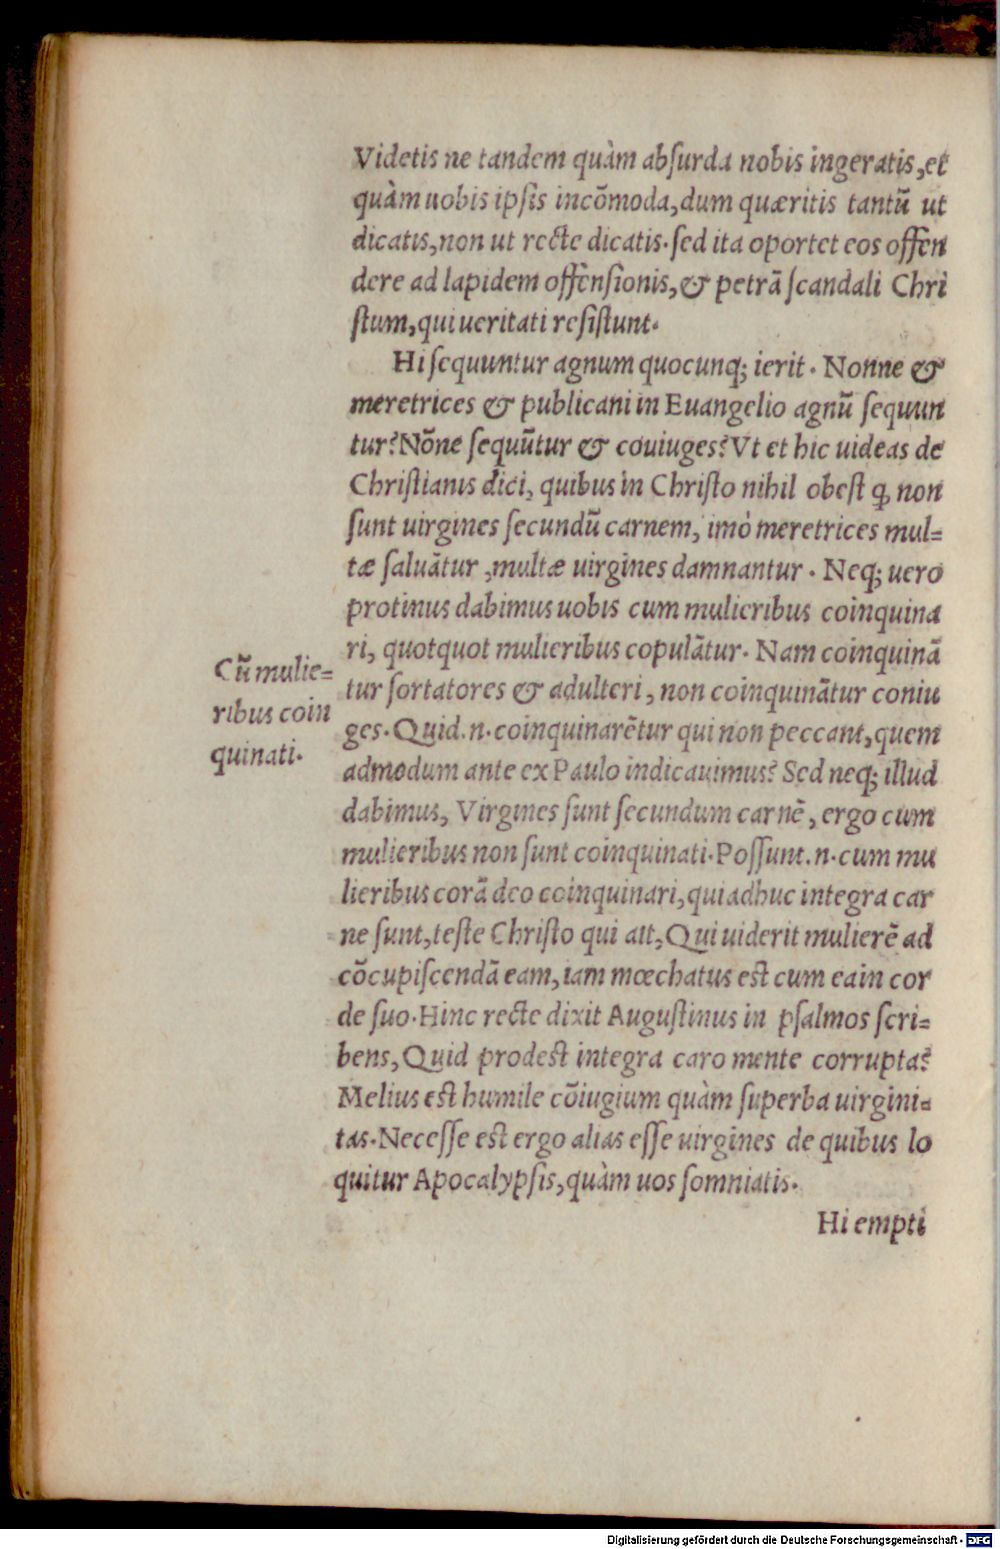 Videtis ne tandem quàm abſurda nobis ingeratis, et
quàm uobis ipſis incõmoda, dum quæritis tantũ ut
dicatis, non ut recte dicatis. ſed ita oportet eos offen
dere ad lapidem offenſionis, & petrã ſcandali Chri
ſtum, qui ueritati reſiſtunt.
Hi ſequuntur agnum quocunq; ierit. Nonne &
meretrices & publicani in Euangelio agnũ ſequun
tur? Nõne ſequũtur & couiuges? Vt et hic uideas de
Chriſtianis dici, quibus in Chriſto nihil obeſt ꝙ non
ſunt uirgines ſecundũ carnem, imò meretrices mul=
tæ ſaluãtur, multæ uirgines damnantur. Neq; uero
protinus dabimus uobis cum mulieribus coinquina
ri, quotquot mulieribus copulãtur. Nam coinquinã
tur ſortatores & adulteri, non coinquinãtur coniu
ges. Quid.n. coinquinarẽtur qui non peccant, quem
admodum ante ex Paulo indicauimus? Sed neq; illud
dabimus, Virgines ſunt ſecundum carnẽ, ergo cum
mulieribus non ſunt coinquinati. Poſſunt.n. cum mu
lieribus corã deo coinquinari, qui adhuc integra car
ne ſunt, teſte Chriſto qui ait, Qui uiderit mulierẽ ad
cõcupiſcendã eam, iam mœchatus eſt cum ea in cor
de ſuo. Hinc recte dixit Auguſtinus in pſalmos ſcri=
bens, Quid prodeſt integra caro mente corrupta?
Melius eſt humile cõiugium quàm ſuperba uirgini=
tas. Neceſſe eſt ergo alias eſſe uirgines de quibus lo
quitur Apocalypſis, quàm uos ſomniatis.
Hi empti
Cũ mulie=
ribus coin
quinati.
Digitalisierung gefördert durch die Deutsche Forschungsgemeinschaft - DFG